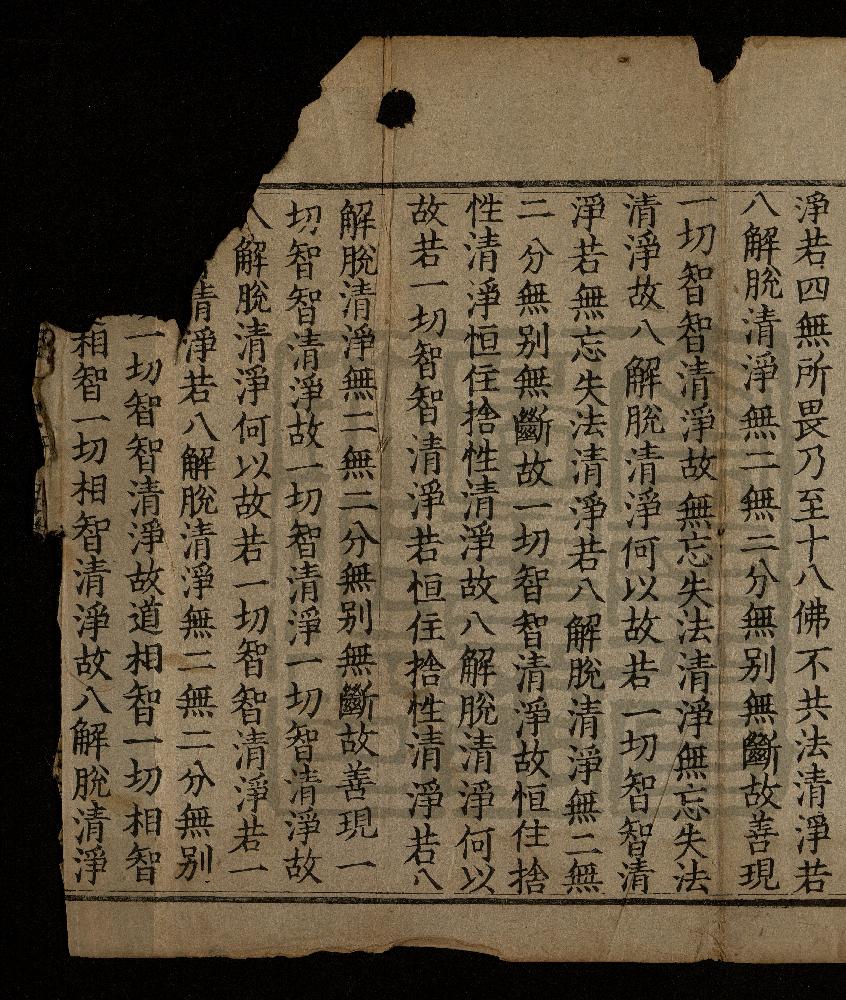 淨若四無所畏乃至十八佛不共法清淨若
八解脫清淨無二無二分無別無斷故善現
一切智智清淨故無忘失法清淨無忘失法
清淨故八解脫清淨何以故若一切智智清
淨若無忘失法清淨若八解脫清淨無二無
二分無別無斷故一切智智清淨故恒住捨
性清淨恒住捨性清淨故八解脫清淨何以
故若一切智智清淨若恒住捨性清淨若八
解脫清淨無二無二分無別無斷故善現一
切智智清淨故一切智清淨一切智清淨故
八解脫清淨何以故若一切智智清淨若一
清淨若八解脫清淨無二無二分無別
一切智智清淨故道相智一切相智
相智一切相智清淨故八解脫清淨